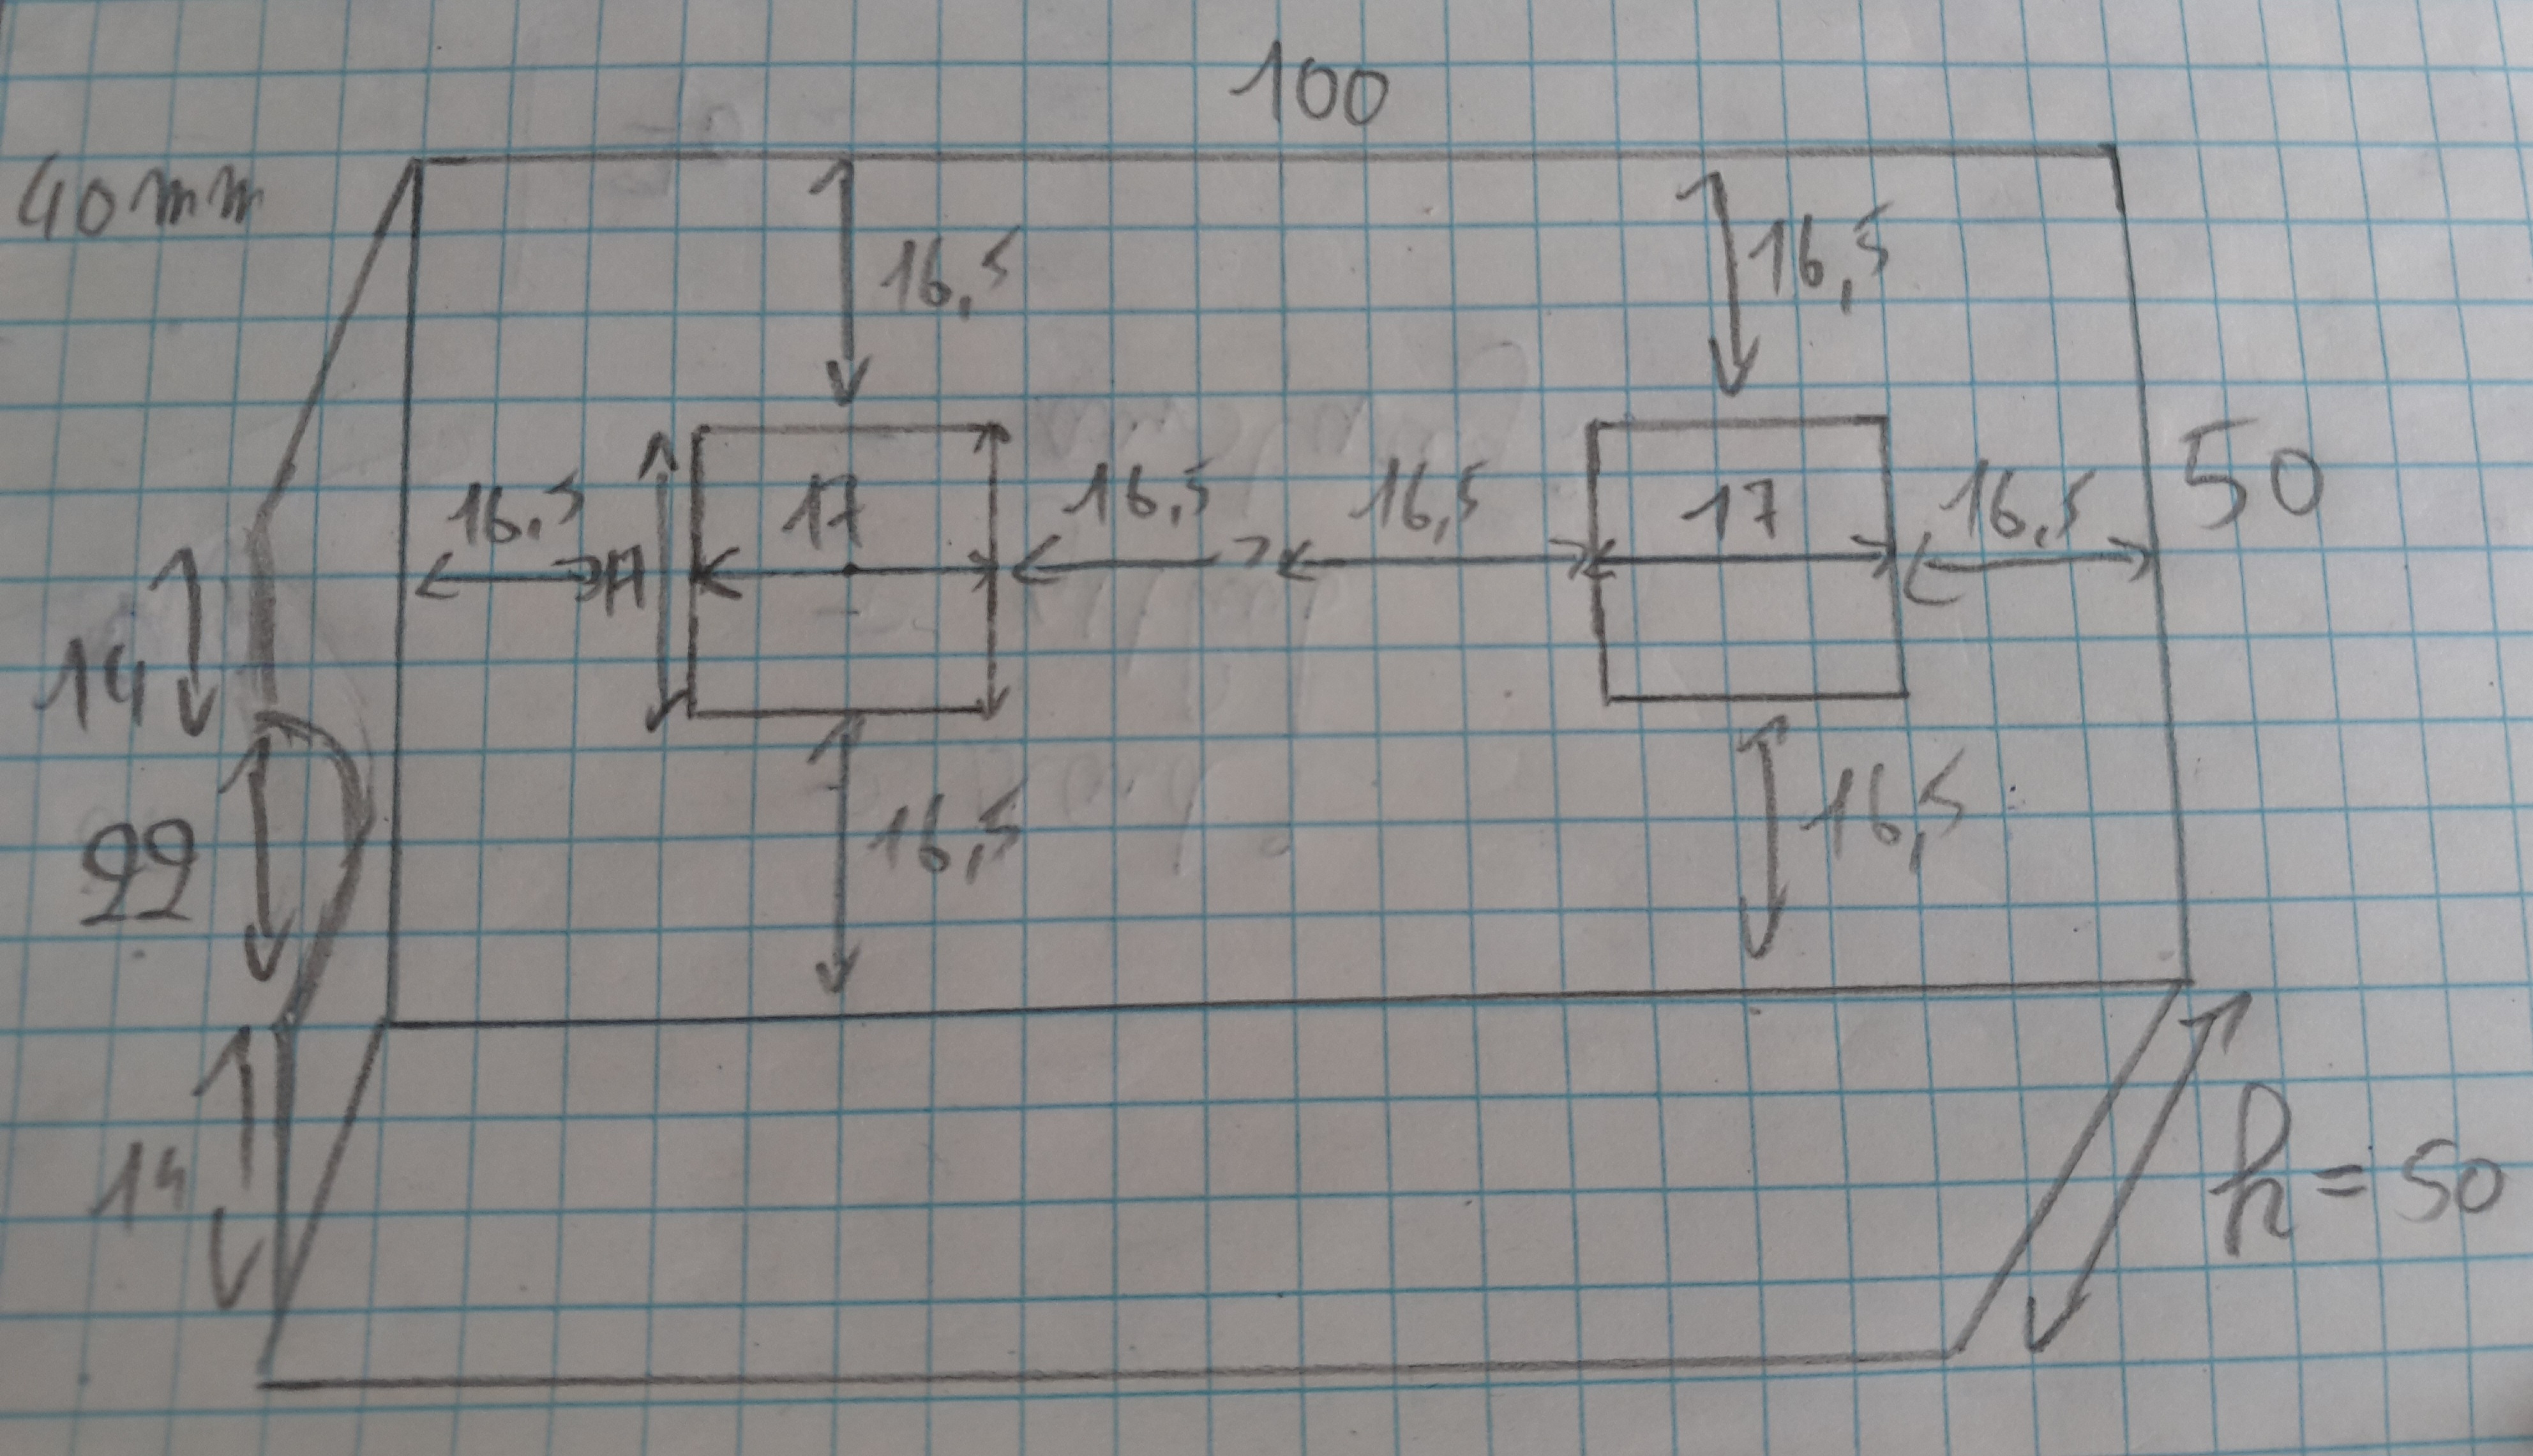 100
40mm
16,5
16,5
16,5
17
17
16,5
16,5
17
16,5
50
14
22
16,5
16,5
14
h=50